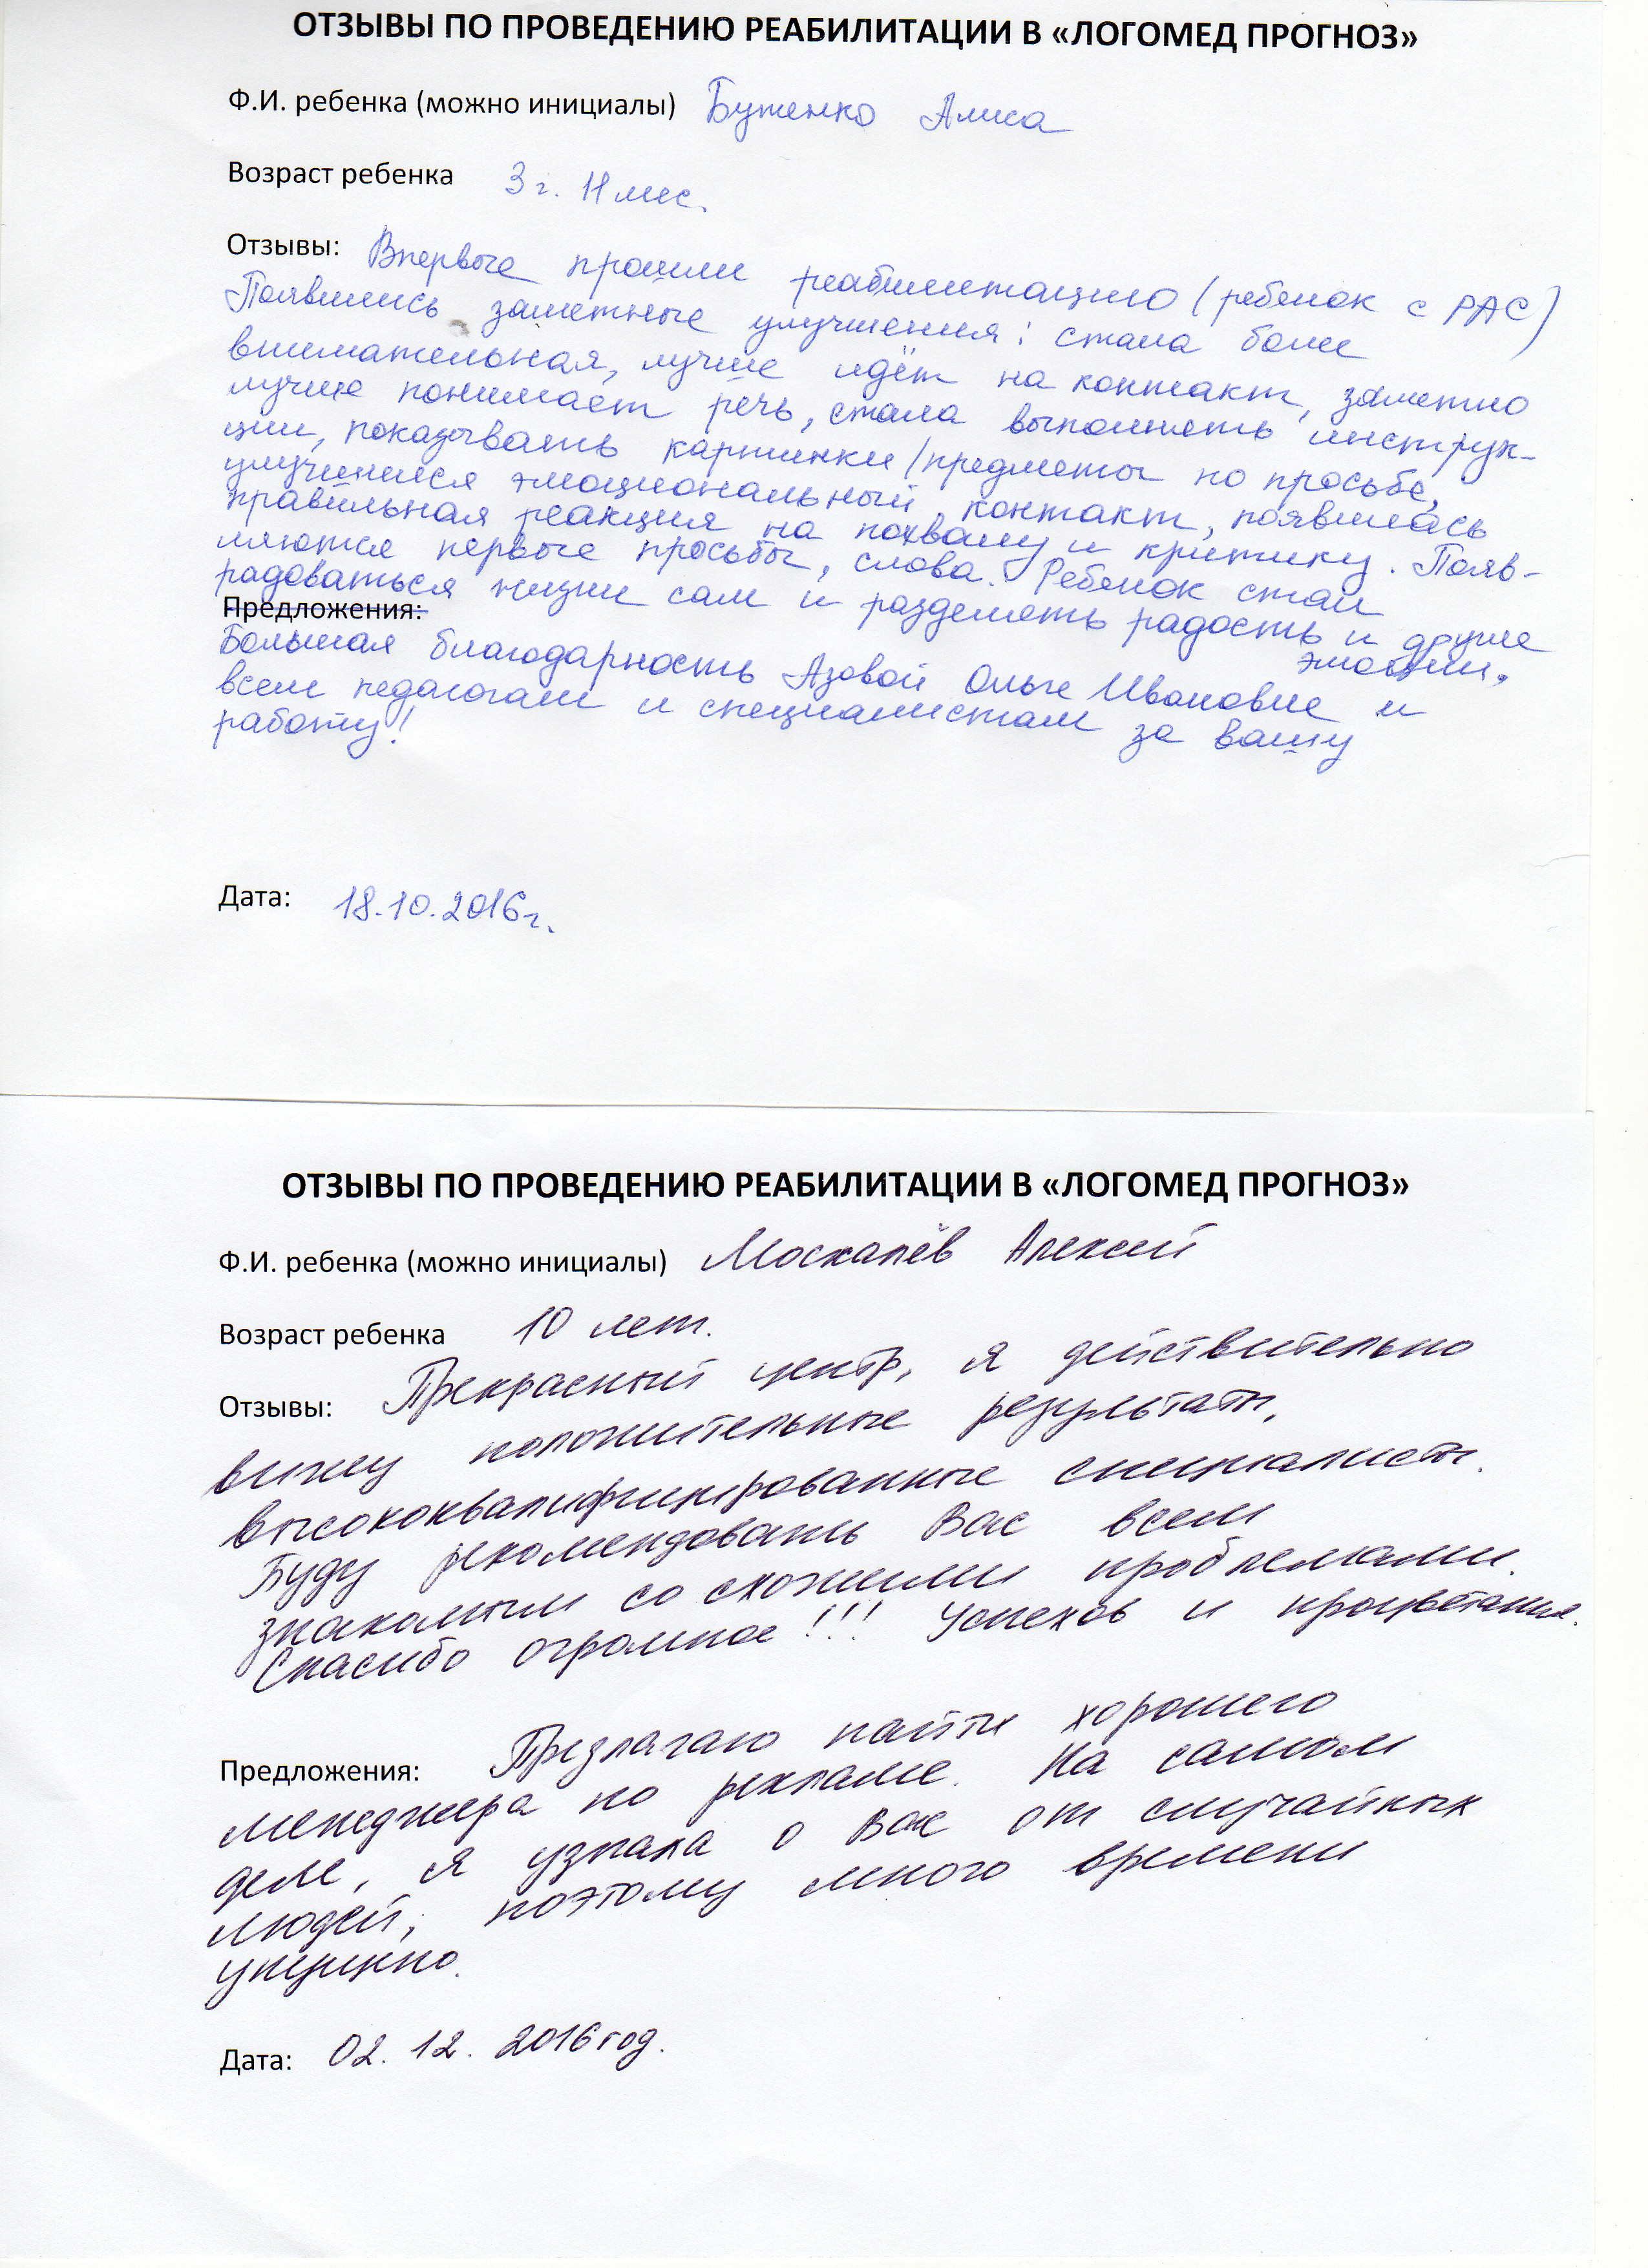 ОТЗЫВЫ ПО ПРОВЕДЕНИЮ РЕАБИЛИТАЦИИ В «ЛОГОМЕД ПРОГНОЗ»
Ф.И. ребенка (можно инициалы) Буженко Алиса
Возраст ребенка 3 г. 11 мес.
Отзывы: Впервые прошли реабилитацию (ребенок с РАС)
Появились заметные улучшения: стала более
внимательная, лучше идёт на контакт, заметно
лучше понимает речь, стала выполнять инструк-
ции, показывать картинки/предметы по просьбе,
улучшился эмоциональный контакт, появилась
правильная реакция на похвалу и критику. Появ-
ляются первые просьбы, слова. Ребенок стал
радоваться жизни сам и разделять радость и другие
эмоции.
Предложения:
Большая благодарность Азовой Ольге Ивановне и
всем педагогам и специалистам за вашу
работу!
Дата: 18.10.2016г.
ОТЗЫВЫ ПО ПРОВЕДЕНИЮ РЕАБИЛИТАЦИИ В «ЛОГОМЕД ПРОГНОЗ»
Ф.И. ребенка (можно инициалы) Москалёв Алексей
Возраст ребенка 10 лет.
Отзывы: Прекрасный центр, я действительно
вижу положительные результаты,
высококвалифицированные специалисты.
Буду рекомендовать Вас всем
знакомым со схожими проблемами.
Спасибо огромное!!! Успехов и процветания.
Предложения: Предлагаю найти хорошего
менеджера по рекламе. На самом
деле, я узнала о Вас от случайных
людей, поэтому много времени
упущено.
Дата: 02. 12. 2016 год.